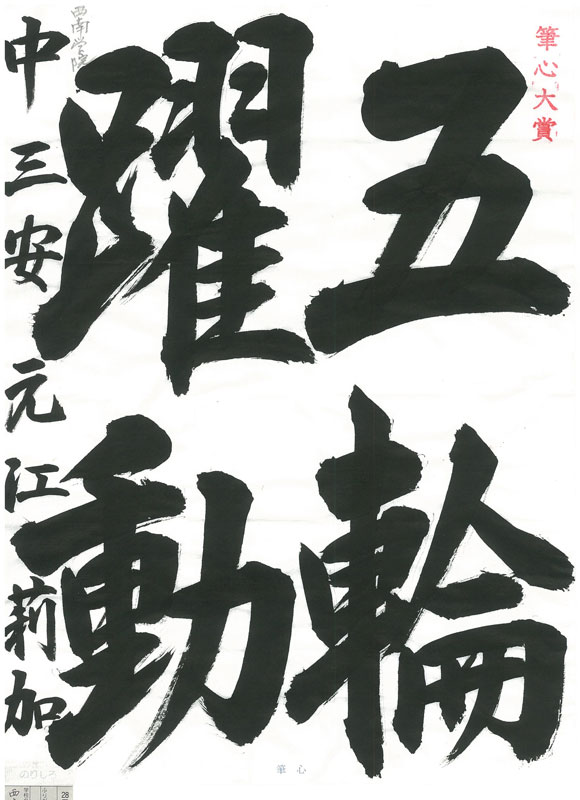 筆心大賞
五輪
躍動
西南学院
中三安元江莉加
筆心
のりしろ
28